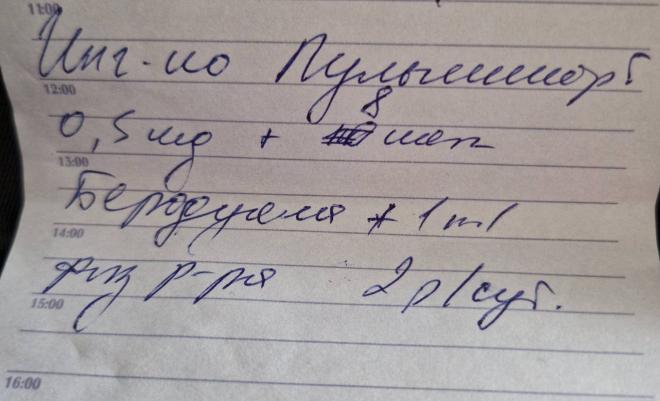 11:00
Инг-но Пульмикорт
12:00
0,5 mg + 8 кап
13:00
Беродуала + 1 ml
14:00
физ р-ра 2 р/сут.
15:00
16:00